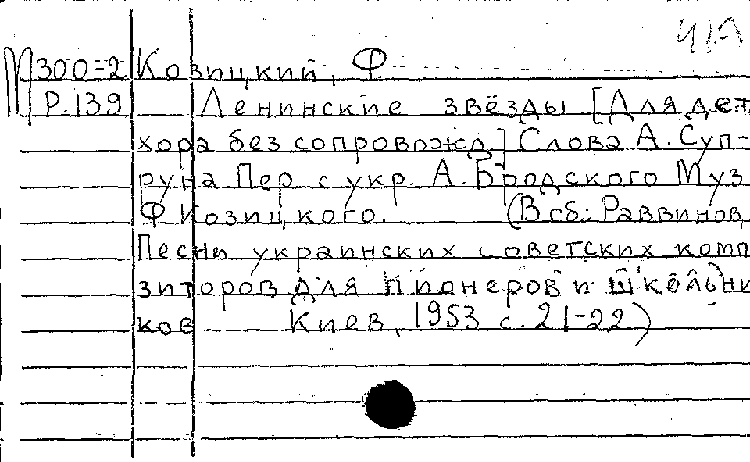 М300=2 Козицкий, Ф.
Р.139 Ленинские звёзды [Для дет
хора без сопровожд.] Слова А. Суп-
руна Пер с укр. А. Бродского Муз
Ф Козицкого. (В сб.: Раввинов,
Песни украинских советских компо
зиторов для пионеров и школьни
ков Киев, 1953 с. 21-22)